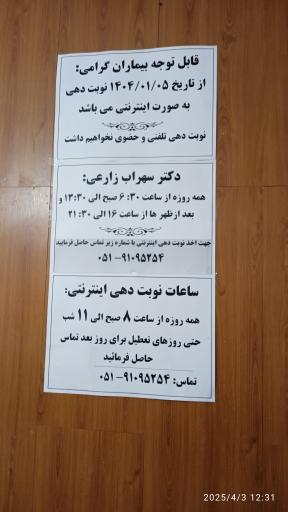 قابل توجه بیماران گرامی:
از تاریخ ۱۴۰۴/۰۱/۰۵ نوبت دهی
به صورت اینترنتی می باشد
نوبت دهی تلفنی و حضوی نخواهیم داشت
دکتر سهراب زارعی:
همه روزه از ساعت ۶:۳۰ صبح الی ۱۳:۳۰ و
بعد ازظهر ها از ساعت ۱۶ الی ۲۱:۳۰
جهت اخذ نوبت دهی اینترنتی با شماره زیر تماس حاصل فرمایید
۰۵۱-۹۱۰۹۵۲۵۴
ساعات نوبت دهی اینترنتی:
همه روزه از ساعت ۸ صبح الی ۱۱ شب
حتی روزهای تعطیل برای روز بعد تماس
حاصل فرمائید
تماس: ۹۱۰۹۵۲۵۴-۰۵۱
2025/4/3 12:31